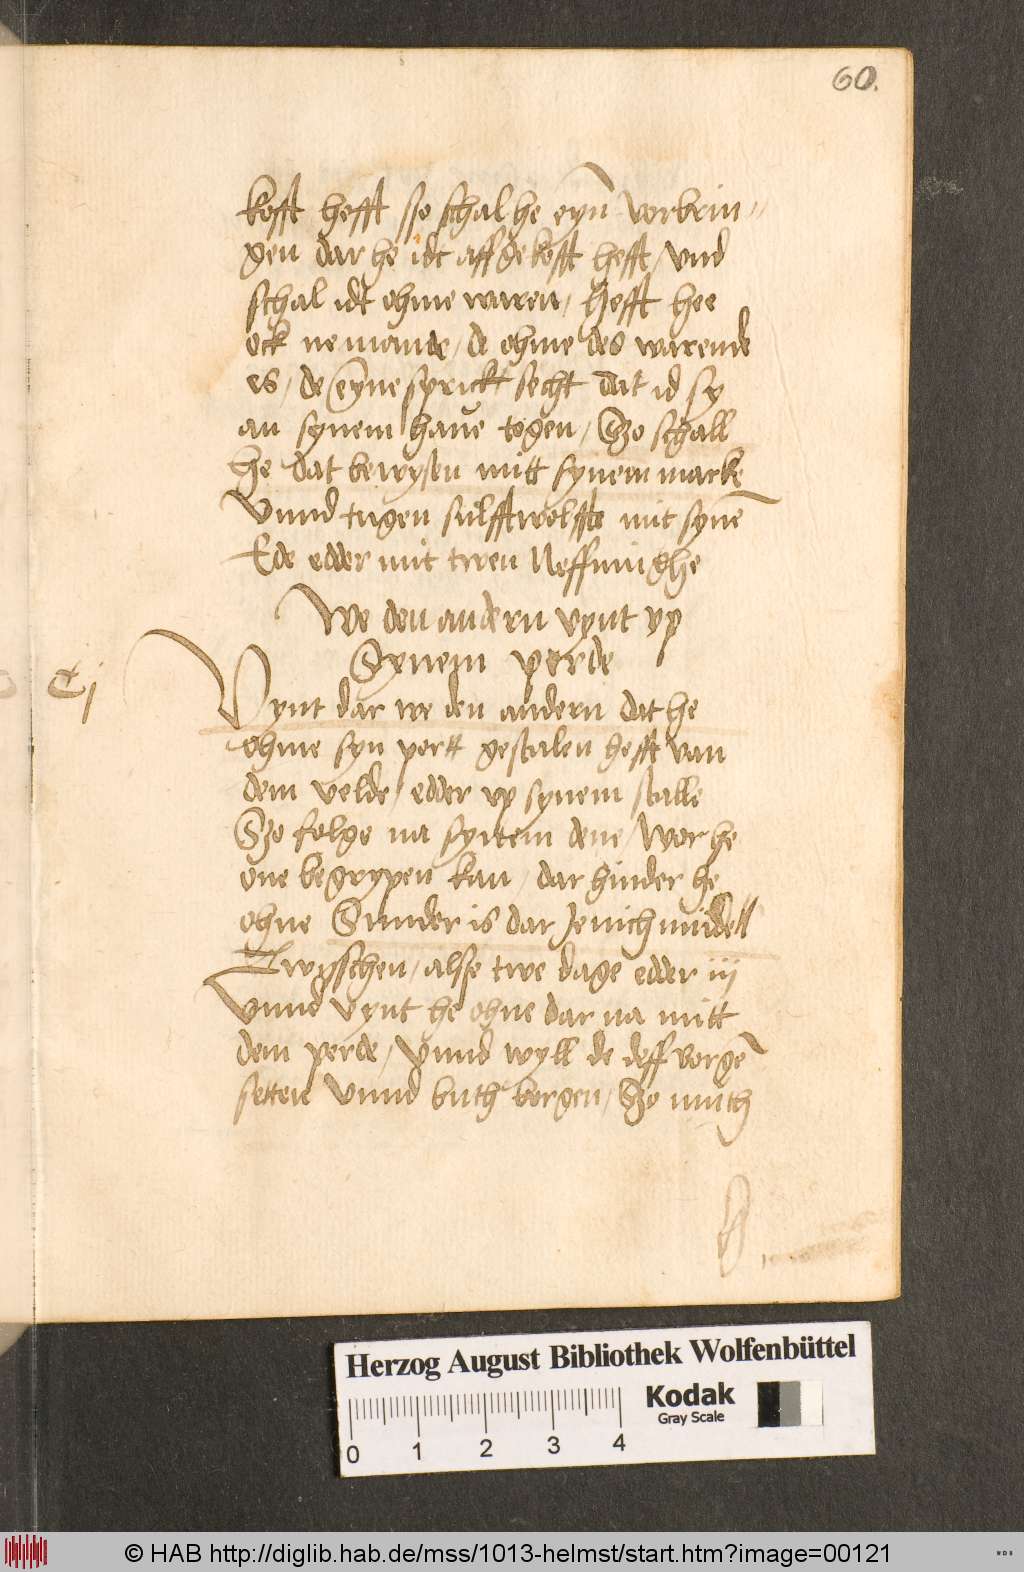 60.
kofft hefft sso schal he eyn vorbrin-
gen dar he idt affgekofft hefft / vnd
schal idt ohme waren / Hefft hee
ock nemande / de ohme des warende
es / de eyne sprickt secht dat id sy
an synem haue togen / Szo schall
he dat bewysen mitt synem marke
Vnnd tugen sulfftwelffte mit synē
Ede edder mit twen Neffninghe
We den andern vynt vp
Synem perde
Vynt dar we den andern dat he
ohme syn pertt gestalen hefft van
dem velde / edder vp synem stalle
Szo folge na synem deue / Wor he
one begrypen kan / dar hinder he
ohne Sunder is dar Jenich middell
Twysschen / alse twe dage edder iij
Vnnd vynt he ohne dar na mitt
dem perde / Vnnd wyll de deff vorgē
setten vnnd buth borgen / Szo muth
Herzog August Bibliothek Wolfenbüttel
0 1 2 3 4
Kodak
Gray Scale
© HAB http://diglib.hab.de/mss/1013-helmst/start.htm?image=00121